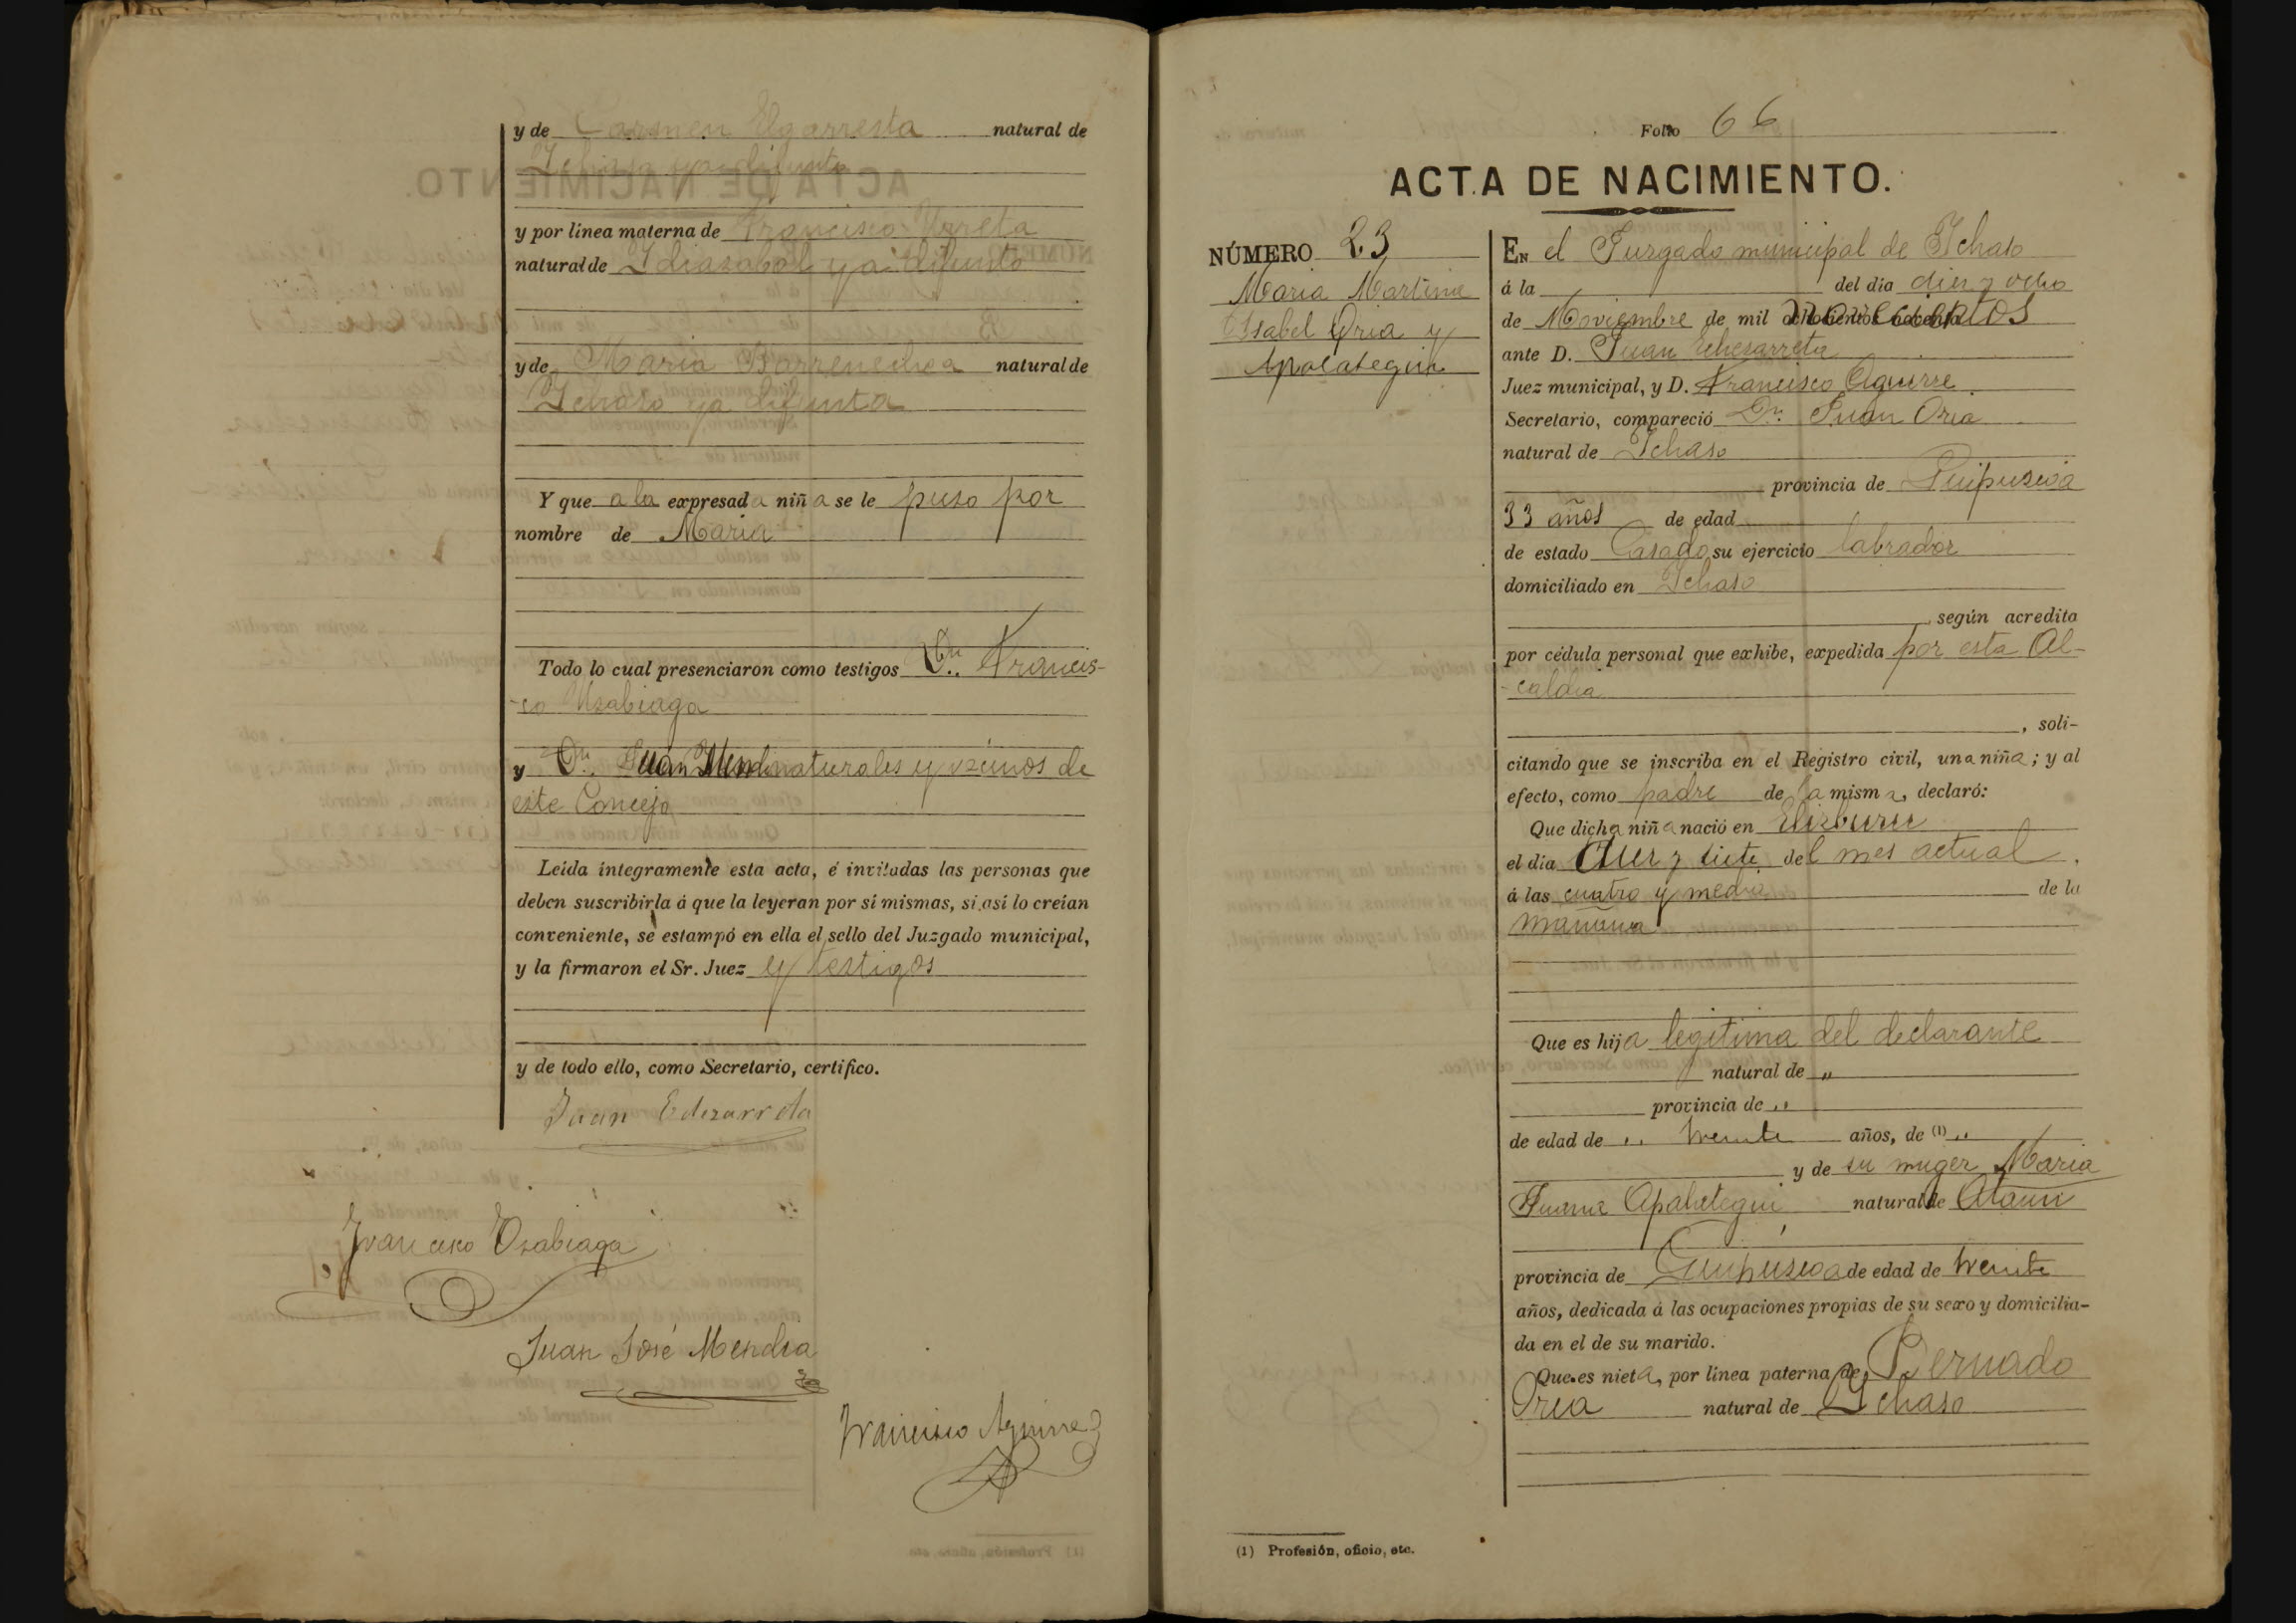 y de Carmen Elgarresta natural de
Ichaso ya difunta
y por línea materna de Francisco Urreta
natural de Idiazabal ya difunto
y de Maria Barrenechea natural de
Ichaso ya difunta
Y que a la expresada niña se le puso por
nombre de Maria
Todo lo cual presenciaron como testigos Dn. Francis-
-co Usabiaga
y Dn. Juan naturales y vecinos de
este Concejo
Leída íntegramente esta acta, é invitadas las personas que
deben suscribirla á que la leyeran por sí mismas, si así lo creían
conveniente, se estampó en ella el sello del Juzgado municipal,
y la firmaron el Sr. Juez y testigos
y de todo ello, como Secretario, certifico.
Juan Echezarreta
Francisco Usabiaga
Juan José Mendia
Francisco Aguirre
Folio 66
ACTA DE NACIMIENTO.
NÚMERO 23
Maria Martina
Isabel Oria y
Apalategui
EN el Jurgado municipal de Ichaso
á la del dia diez y ocho
de Noviembre de mil novecientos
ante D. Juan Echezarreta
Juez municipal, y D. Francisco Aguirre
Secretario, compareció Dn. Juan Oria
natural de Ichaso
provincia de Guipuscoa
33 años de edad
de estado Casado su ejercicio labrador
domiciliado en Ichaso
, según acredita
por cédula personal que exhibe, expedida por esta Al-
-caldia
, soli-
citando que se inscriba en el Registro civil, una niña; y al
efecto, como padre de la misma, declaró:
Que dicha niña nació en Elizburu
el día diez y siete del mes actual.
á las cuatro y media de la
mañana
Que es hija legitima del declarante
natural de "
provincia de "
de edad de " treinta años, de (1) "
y de su muger Maria
Juana Apalategui natural de Ataun
provincia de Guipuscoa de edad de treinta
años, dedicada á las ocupaciones propias de su sexo y domicilia-
da en el de su marido.
Que es nieta, por línea paterna de Bernado
Oria natural de Ichaso
(1) Profesión, oficio, etc.